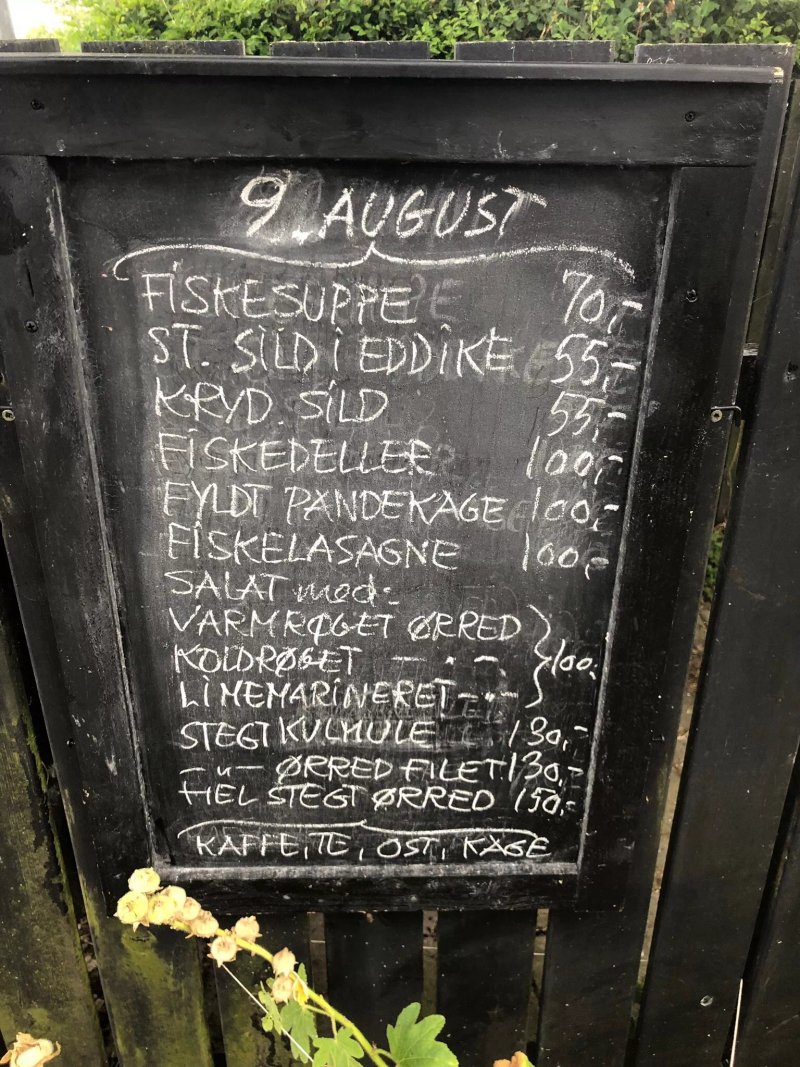 9. AUGUST
FISKESUPPE 70,-
ST. SILD I EDDIKE 55,-
KRYD. SILD 55,-
FISKEDELLER 100,-
FYLDT PANDEKAGE 100,-
FISKELASAGNE 100,-
SALAT med:
VARMRØGET ØRRED
KOLDRØGET — " — 100,-
LIMEMARINERET - " -
STEGT KULMULE 130,-
- " - ØRRED FILET 130,-
HEL STEGT ØRRED 150,-
KAFFE, TE, OST, KAGE